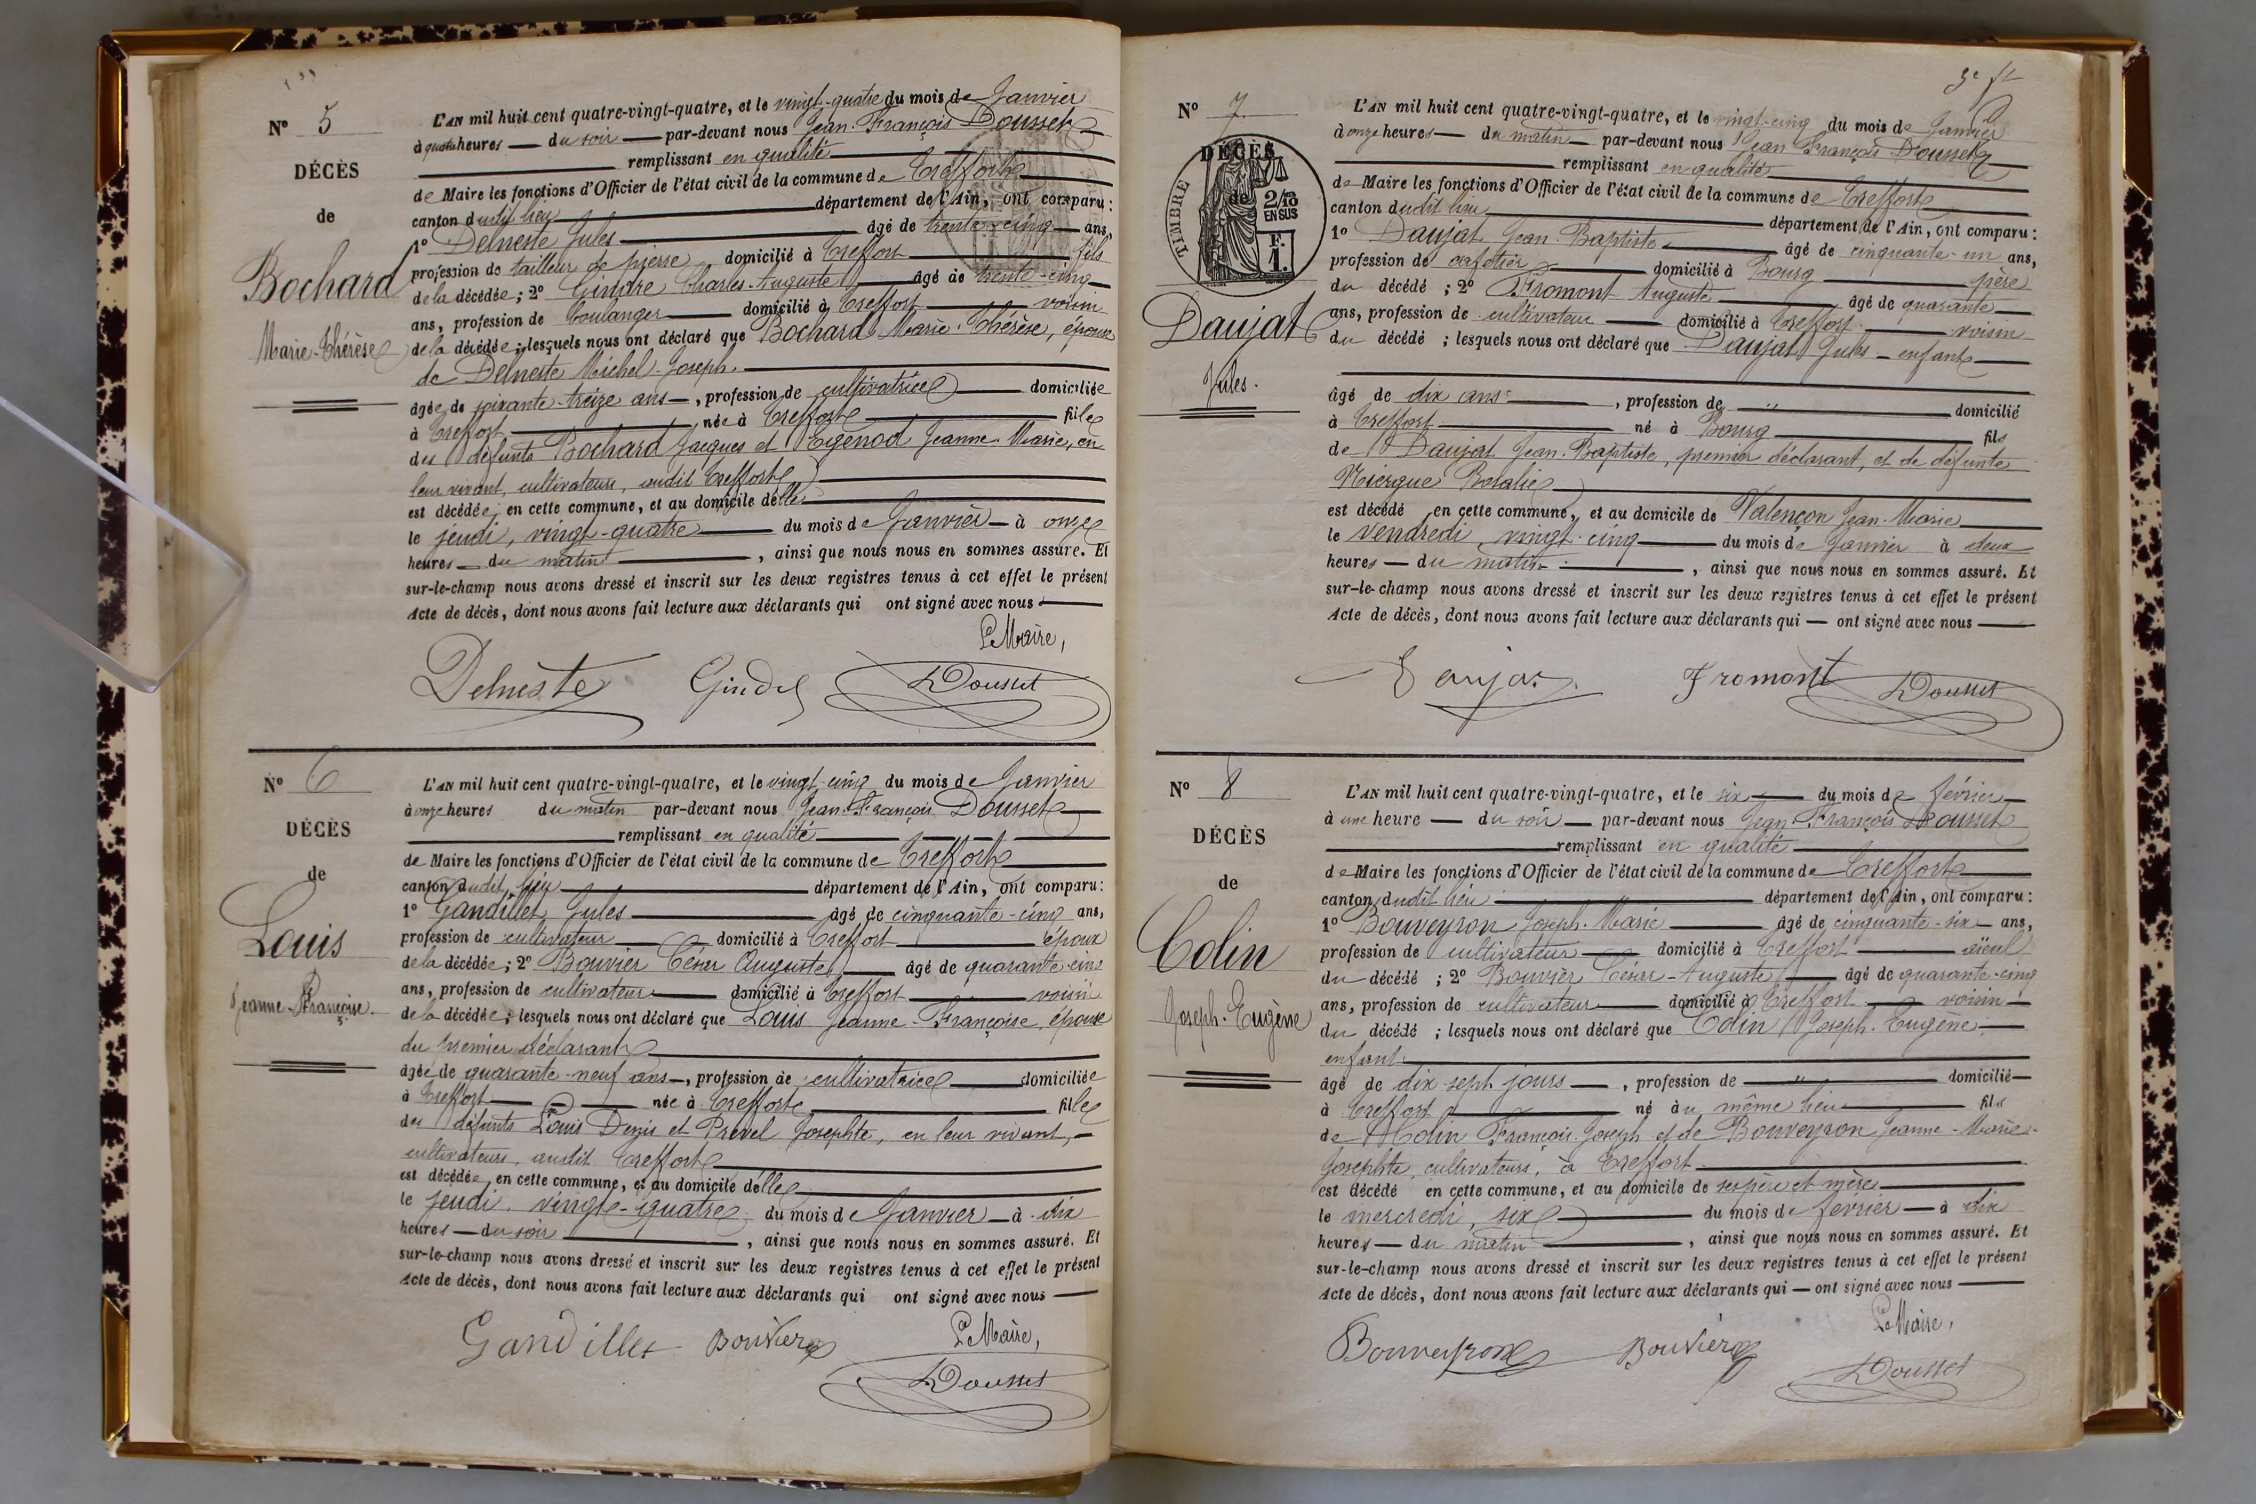 N° 5
DÉCÈS
de
Bochard
Marie-Thérèse
L'AN mil huit cent quatre-vingt-quatre, et le vingt-quatre du mois de Janvier
à quatre heures du soir par-devant nous Jean-François Dousset
remplissant en qualité
de Maire les fonctions d'Officier de l'état civil de la commune de Treffort
canton dudit lieu département de l'Ain, ont comparu:
1° Delneste Jules âgé de trente-cinq ans,
profession de tailleur de pierre domicilié à Treffort fils
de la décédée; 2° Gindre Charles-Auguste âgé de trente-cinq
ans, profession de boulanger domicilié à Treffort voisin
de la décédée; lesquels nous ont déclaré que Bochard Marie-Thérèse, épouse
de Delneste Michel-Joseph.
âgée de soixante-treize ans, profession de cultivatrice domiciliée
à Treffort née à Treffort fille
des défunts Bochard Jacques et Egénod Jeanne-Marie, en
leur vivant, cultivateurs, audit Treffort
est décédée en cette commune, et au domicile d'elle
le jeudi, vingt-quatre du mois de Janvier à onze
heures du matin, ainsi que nous nous en sommes assuré. Et
sur-le-champ nous avons dressé et inscrit sur les deux registres tenus à cet effet le présent
Acte de décès, dont nous avons fait lecture aux déclarants qui ont signé avec nous
Le Maire,
Delneste Gindre Dousset
N° 6
DÉCÈS
de
Louis
Jeanne-Françoise.
L'AN mil huit cent quatre-vingt-quatre, et le vingt-cinq du mois de Janvier
à onze heures du matin par-devant nous Jean-François Dousset
remplissant en qualité
de Maire les fonctions d'Officier de l'état civil de la commune de Treffort
canton dudit lieu département de l'Ain, ont comparu:
1° Gandillet Jules âgé de cinquante-cinq ans,
profession de cultivateur domicilié à Treffort époux
de la décédée; 2° Bouvier César Auguste âgé de quarante-cinq
ans, profession de cultivateur domicilié à Treffort voisin
de la décédée; lesquels nous ont déclaré que Louis Jeanne-Françoise, épouse
du premier déclarant
âgée de quarante-neuf ans, profession de cultivatrice domiciliée
à Treffort née à Treffort fille
des défunts Louis Denis et Prevel Josephte, en leur vivant,
cultivateurs, audit Treffort
est décédée en cette commune, et au domicile d'elle
le jeudi, vingt-quatre du mois de Janvier à dix
heures du soir, ainsi que nous nous en sommes assuré. Et
sur-le-champ nous avons dressé et inscrit sur les deux registres tenus à cet effet le présent
Acte de décès, dont nous avons fait lecture aux déclarants qui ont signé avec nous
Le Maire,
Gandillet Bouvier
Dousset
3e ft
N° 7
DÉCÈS
de
TIMBRE
2/10
EN SUS
F.
1.
Daujat
Jules.
L'AN mil huit cent quatre-vingt-quatre, et le vingt-cinq du mois de Janvier
à onze heures du matin par-devant nous Jean François Dousset
remplissant en qualité
de Maire les fonctions d'Officier de l'état civil de la commune de Treffort
canton dudit lieu département de l'Ain, ont comparu:
1° Daujat Jean-Baptiste âgé de cinquante-un ans,
profession de cafetier domicilié à Bourg père
du décédé; 2° Fromont Auguste âgé de quarante
ans, profession de cultivateur domicilié à Treffort voisin
du décédé; lesquels nous ont déclaré que Daujat Jules enfant
âgé de dix ans, profession de " domicilié
à Treffort né à Bourg fils
de Daujat Jean-Baptiste, premier déclarant, et de défunte
Niergue Rosalie
est décédé en cette commune, et au domicile de Valençon Jean-Marie
le vendredi, vingt-cinq du mois de Janvier à deux
heures du matin, ainsi que nous nous en sommes assuré. Et
sur-le-champ nous avons dressé et inscrit sur les deux registres tenus à cet effet le présent
Acte de décès, dont nous avons fait lecture aux déclarants qui ont signé avec nous
Daujat Fromont Dousset
N° 8
DÉCÈS
de
Colin
Joseph-Eugène
L'AN mil huit cent quatre-vingt-quatre, et le six du mois de février
à une heure du soir par-devant nous Jean-François Dousset
remplissant en qualité
de Maire les fonctions d'Officier de l'état civil de la commune de Treffort
canton dudit lieu département de l'Ain, ont comparu:
1° Bouveyron Joseph-Marie âgé de cinquante-six ans,
profession de cultivateur domicilié à Treffort aïeul
du décédé; 2° Bouvier César-Auguste âgé de quarante-cinq
ans, profession de cultivateur domicilié à Treffort voisin
du décédé; lesquels nous ont déclaré que Colin Joseph-Eugène
enfant
âgé de dix-sept jours, profession de " domicilié
à Treffort né au même lieu fils
de Colin François-Joseph et de Bouveyron Jeanne-Marie-
Josephte, cultivateurs, à Treffort
est décédé en cette commune, et au domicile de ses père et mère
le mercredi, six du mois de février à dix
heures du matin, ainsi que nous nous en sommes assuré. Et
sur-le-champ nous avons dressé et inscrit sur les deux registres tenus à cet effet le présent
Acte de décès, dont nous avons fait lecture aux déclarants qui ont signé avec nous
Le Maire,
Bouveyron Bouvier
Dousset